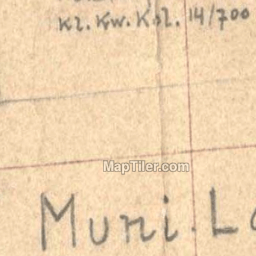 Kl. Kw. Kol. 14/700
MapTiler.com
Muni. La